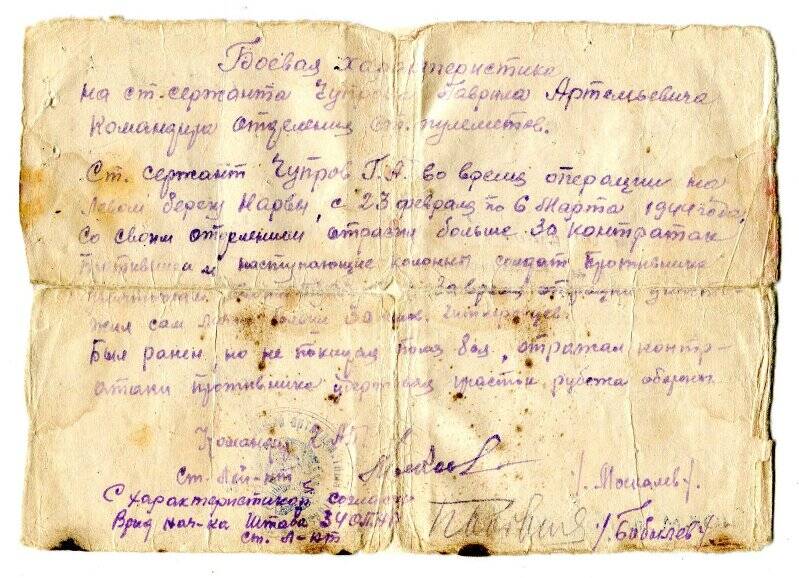 Боевая характеристика
на ст. сержанта Чупрова Гаврила Артемьевича
командира отделения ст. пулеметов.
Ст. сержант Чупров Г.А. во время операции на
левом берегу Нарвы, с 23 февраля по 6 Марта 1944 года,
со своим отделением отразил больше 30 контратак
противника и наступающие колонны солдат противника
За время операции
жил сам лично больше 30 гитлеровцев.
Был ранен, но не покинул поля боя, отражал контр-
атаки противника удерживая участок рубежа обороны.
Командир
ст. лей-нт /. Москалев /.
С характеристикой согласен
Врид нач-ка Штаба
ст. л-нт /. Бобылев /